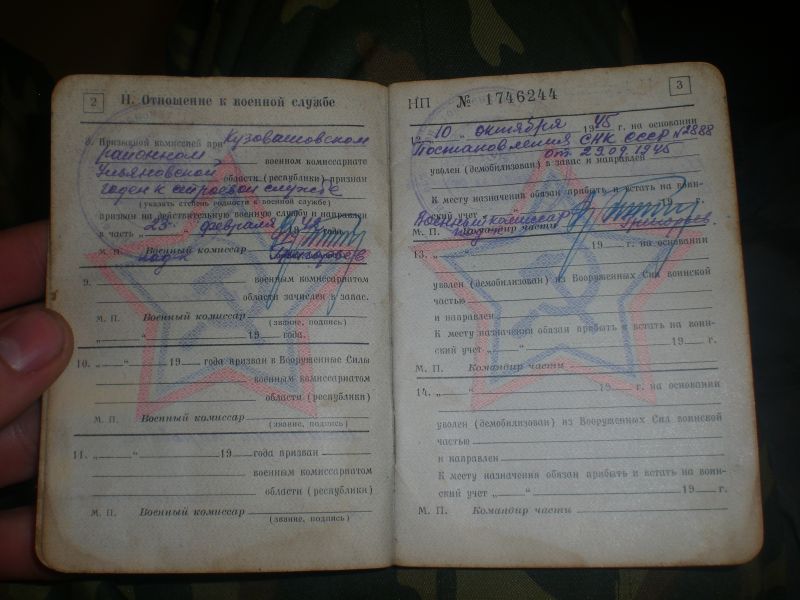 2 II. Отношение к военной службе
8. Призывной комиссией при Кузоватовском
районном военном комиссариате
Ульяновской области (республики) признан
годен к строевой службе
(указать степень годности к военной службе)
призван на действительную военную службу и направлен
в часть „25“ февраля 19 года.
М. П. Военный комиссар
под-к Григорьев
9. военным комиссариатом
области зачислен в запас.
М. П. Военный комиссар
(звание, подпись)
„ “ 19 года.
10. „ “ 19 года призван в Вооруженные Силы
военным комиссариатом
области (республики)
М. П. Военный комиссар
(звание, подпись)
11. „ “ 19 года призван
военным комиссариатом
области (республики)
М. П. Военный комиссар
(звание, подпись)
3
НП № 1746244
12. „10“ октября 1945 г. на основании
Постановления СНК СССР №2888
от 29.09.1945
уволен (демобилизован) в запас и направлен
К месту назначения обязан прибыть и встать на воин-
ский учет „ 19 г.
Военный комиссар
М. П. Командир части Григорьев
13. „ “ 19 г. на основании
уволен (демобилизован) из Вооруженных Сил воинской
частью
и направлен
К месту назначения обязан прибыть и встать на воин-
ский учет „ “ 19 г.
М. П. Командир части
14. „ “ 19 г. на основании
уволен (демобилизован) из Вооруженных Сил воинской
частью
и направлен
К месту назначения обязан прибыть и встать на воин-
ский учет „ “ 19 г.
М. П. Командир части